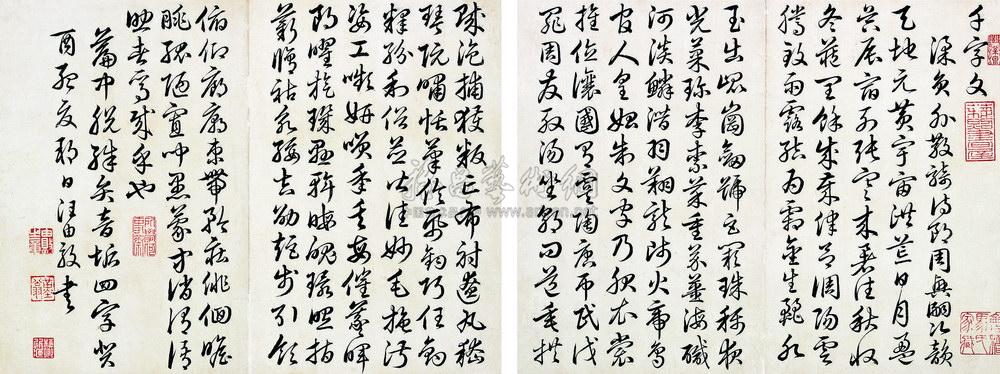 千字文
梁員外散騎侍郎周興嗣次韻
天地元黃宇宙洪荒日月盈
昃辰宿列張寒來暑往秋收
冬藏閏餘成歲律呂調陽雲
騰致雨露結為霜金生麗水
玉出崑岡劍號巨闕珠稱夜
光菓珍李柰菜重芥薑海鹹
河淡鱗潛羽翔龍師火帝鳥
官人皇始制文字乃服衣裳
推位讓國有虞陶唐弔民伐
罪周發殷湯坐朝問道垂拱
賊盜捕獲叛亡布射遼丸嵇
琴阮嘯恬筆倫紙鈞巧任釣
釋紛利俗並皆佳妙毛施淑
姿工嚬妍笑年矢每催曦暉
朗曜旋璣懸斡晦魄環照指
薪脩祜永綏吉劭矩步引領
俯仰廊廟束帶矜莊徘徊瞻
眺孤陋寡聞愚蒙等誚謂語
助者焉哉乎也
篇中脫矣音垢四字癸
酉孟夏朔日汪由敦書